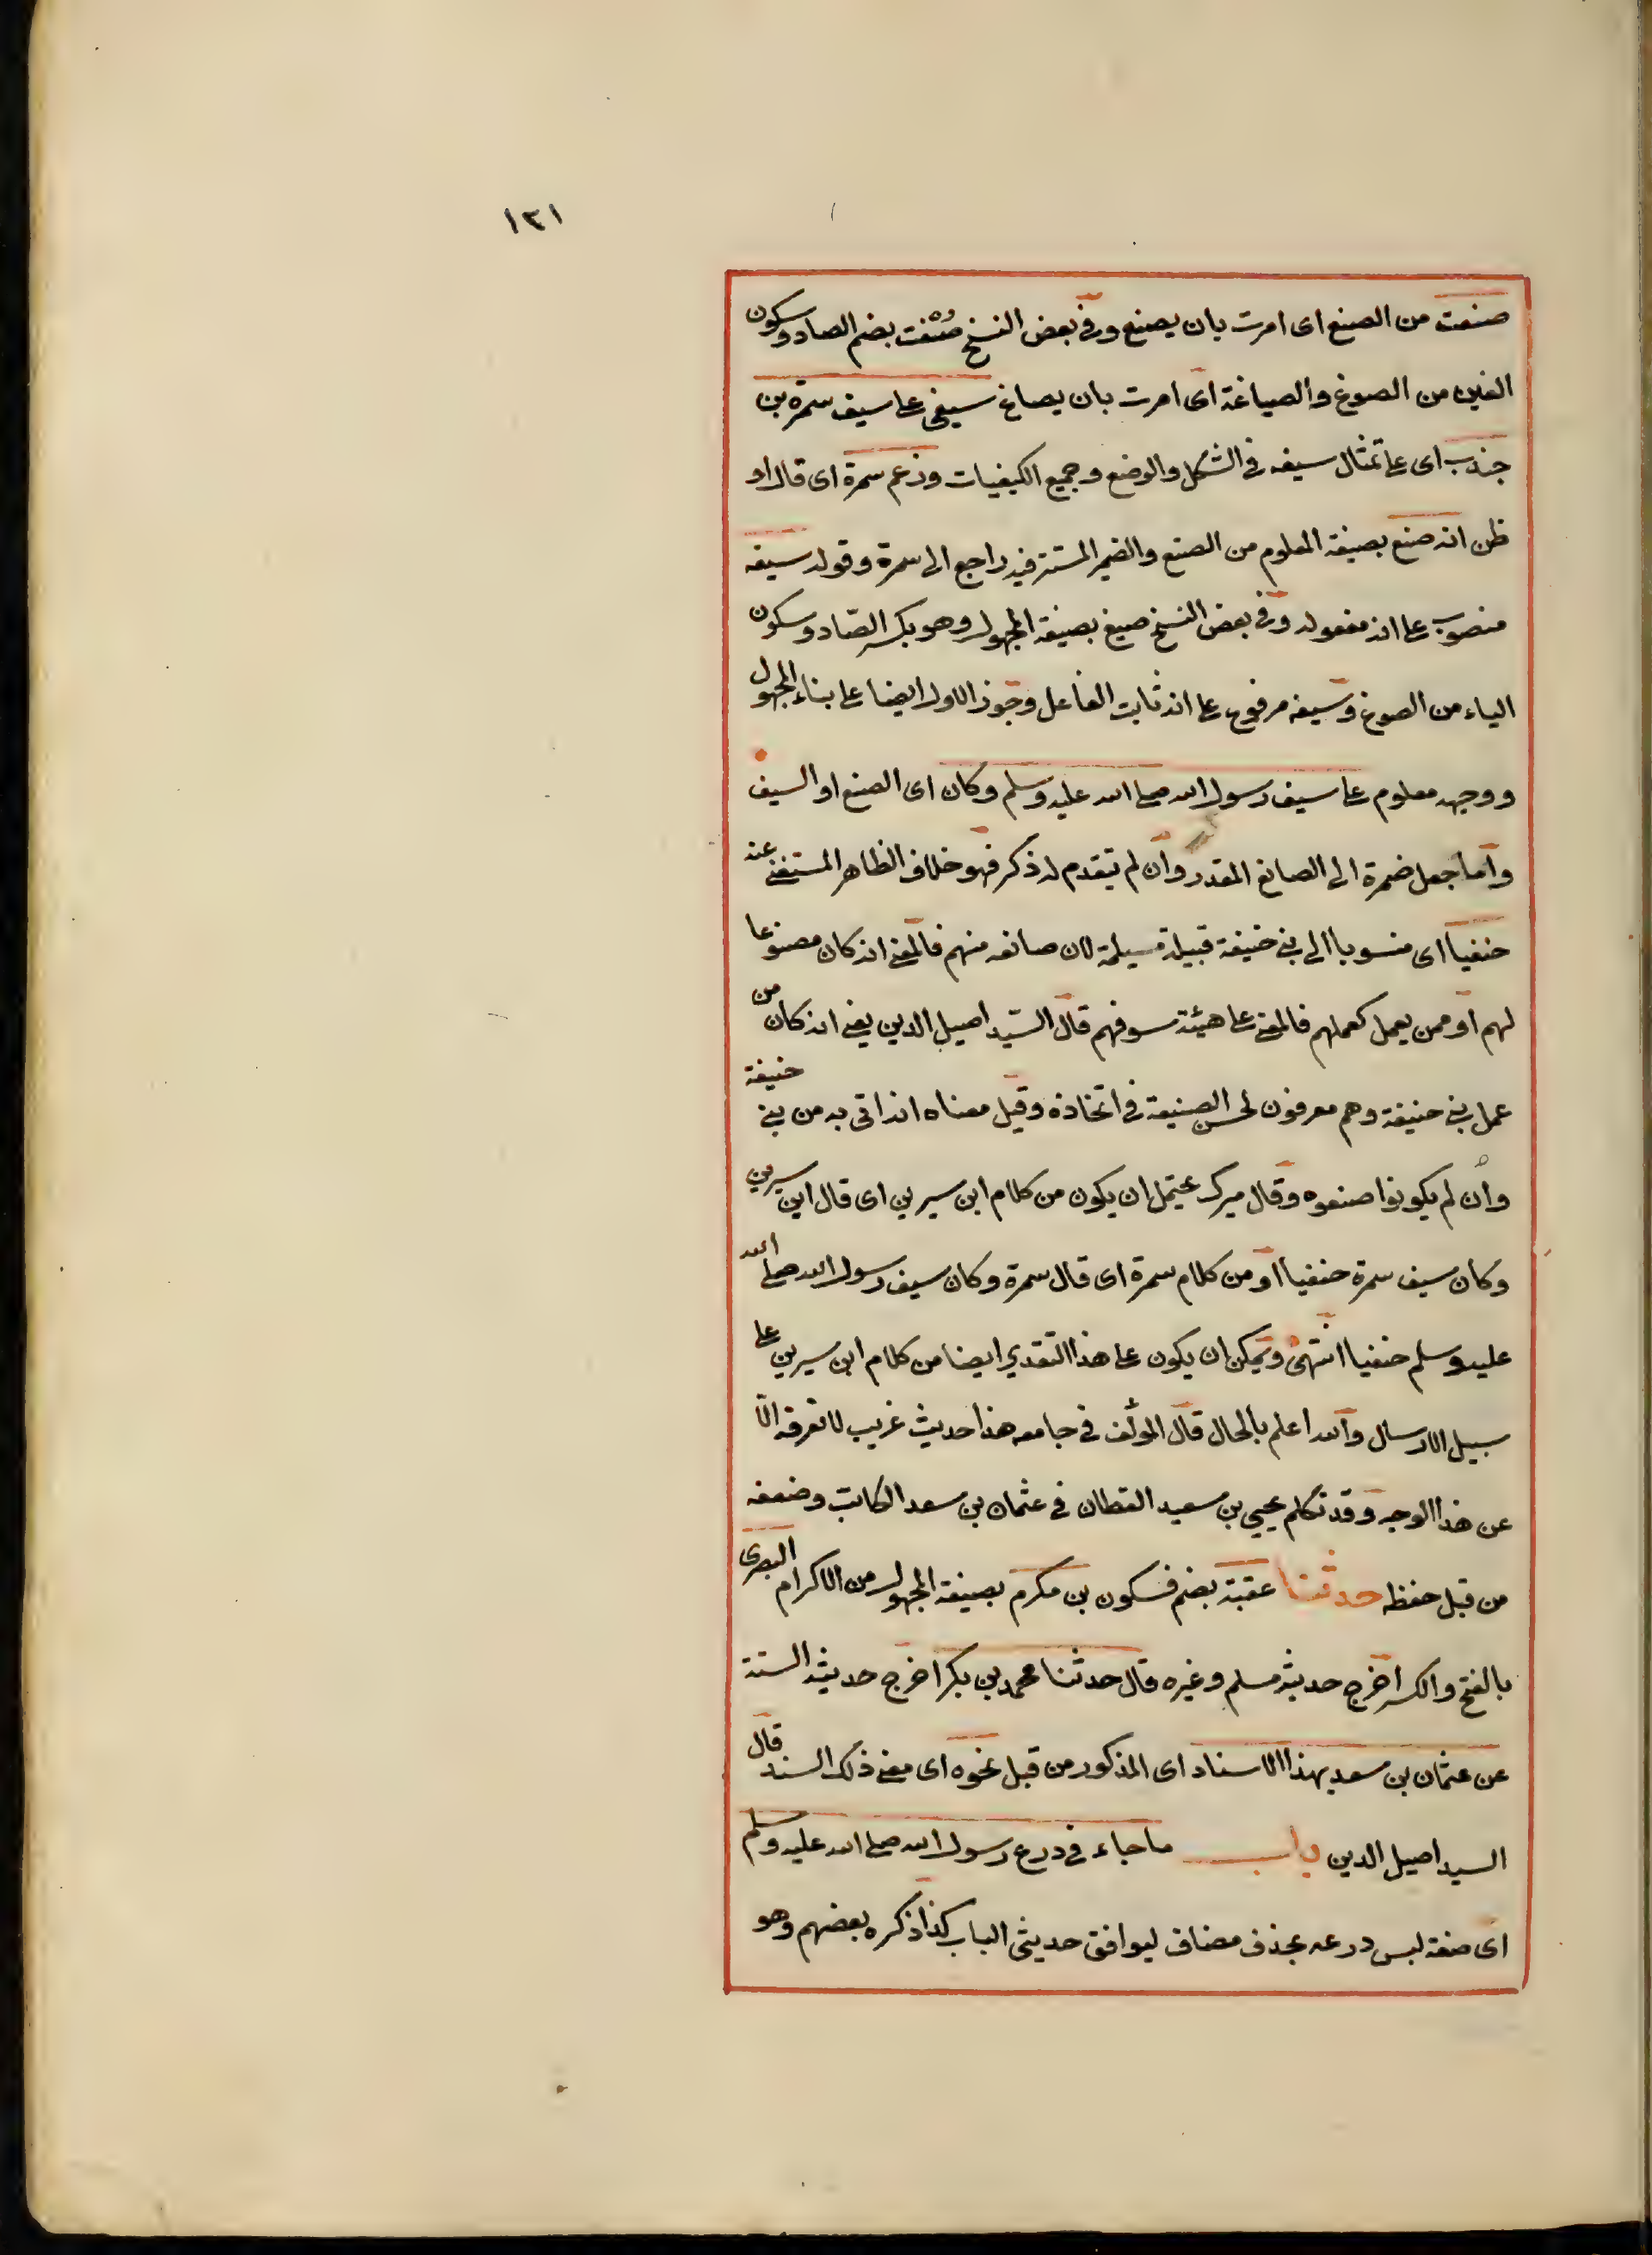 ١٣١
صنعت من الصنع اى امرت بان يصنع وفى بعض النسخ صُغْت بضم الصاد وسكون
الغين من الصوغ والصياغة اى امرت بان يصاغ سيفى على سيف سمرة بن
جندب اى على تمثال سيفه فى الشكل والوضع وجميع الكيفيات وزعم سمرة اى قال او
ظن انه صنع بصيغة المعلوم من الصنع والضمير المستتر فيه راجع الى سمرة وقوله سيفه
منصوب على انه مفعوله وفى بعض النسخ صيغ بصيغة المجهول وهو بكسر الصّاد وسكون
الياء من الصوغ وسيفه مرفوع على انه نايب الفاعل وجوز الاول ايضا على بناء المجهول
ووجهه معلوم على سيف رسول الله صلى الله عليه وسلم وكان اى الصنع او السيف
وآما جعل ضمرة الى الصانع المقدر وان لم يتقدم له ذكر فهو خلاف الظاهر المستغنى عنه
حنفيا اى منسوبا الى بنى حنيفة قبيلة مسيلمة لان صانعه منهم فالمعنى انه كان مصنوعا
لهم او ممن يعمل كعملهم فالمعنى على هيئة سيوفهم قال السّيد اصيل الدين يعنى انه كان من
عمل بنى حنيفة وهم معرفون لحسن الصنيعة فى اتخاذه وقيل معناه انه اتى به من بنى حنيفة
وان لم يكونوا صنعوه وقال ميرك يحتمل ان يكون من كلام ابن سيرين اى قال ابن سيرين
وكان سيف سمرة حنفيا او من كلام سمرة اى قال سمرة وكان سيف رسول الله صلى الله
عليه وسلم حنفيا انتهى ويمكن ان يكون على هذا التقدير ايضا من كلام ابن سيرين على
سبيل الارسال والله اعلم بالحال قال المؤلف فى جامعه هذا حديث غريب لا نعرفه الّا
عن هذا الوجه وقد تكلم يحيى بن سعيد القطان فى عثمان بن سعد الكاتب وضعفه
من قبل حفظه حدثنا عقبة بضم فسكون بن مكرم بصيغة المجهول من الاكرام البصرى
بالفتح والكسر اخرج حديثه مسلم وغيره قال حدثنا محمد بن بكر اخرج حديثه الستة
عن عثمان بن سعد بهذا الاسناد اى المذكور من قبل نحوه اى معنى ذلك السند قال
السيد اصيل الدين باب ما جاء فى درع رسول الله صلى الله عليه وسلم
اى صفة لبس درعه بحذف مضاف ليوافق حديثى الباب كذا ذكره بعضهم وهو